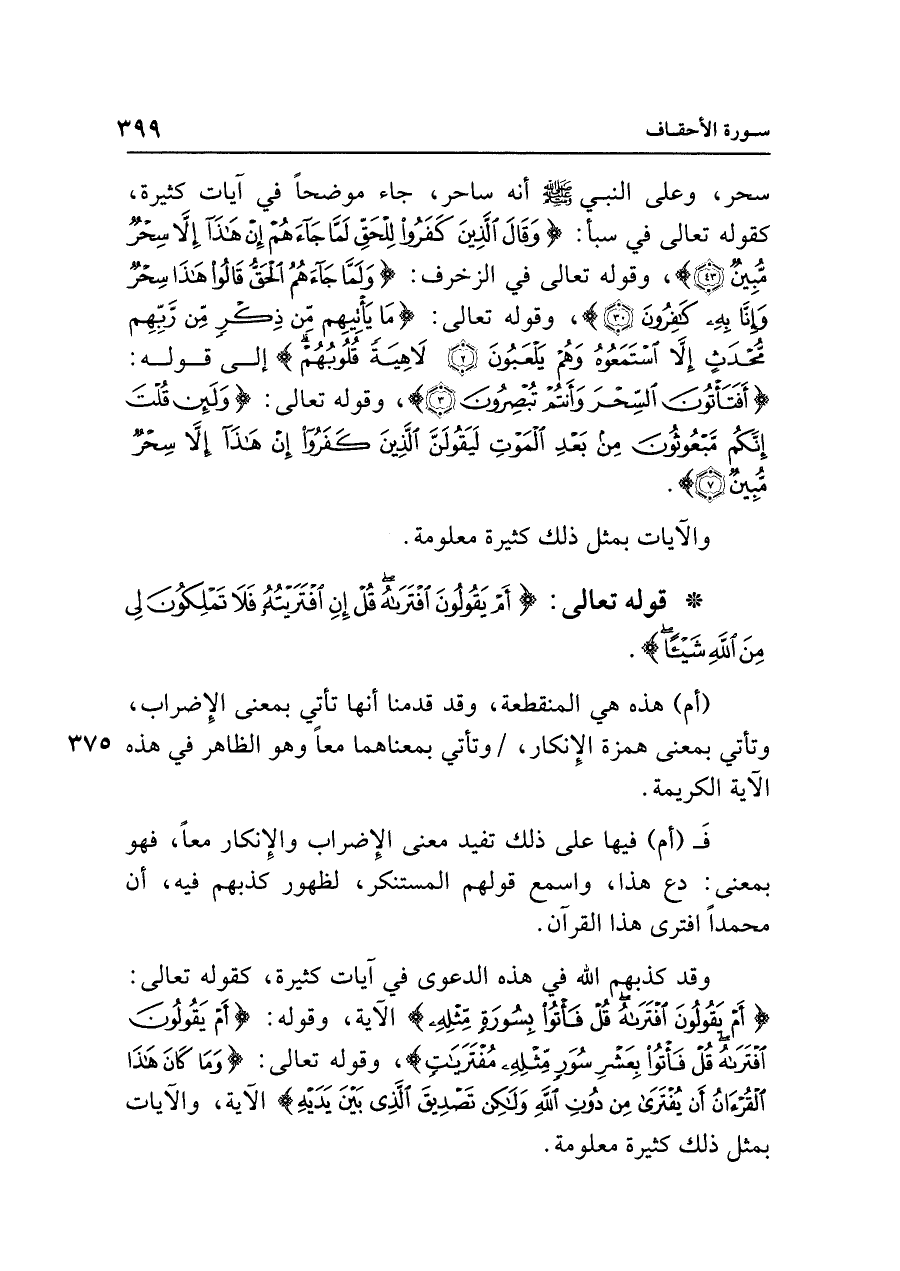 سورة الأحقاف ٣٩٩
سحر، وعلى النبي ﷺ أنه ساحر، جاء موضحاً في آيات كثيرة،
كقوله تعالى في سبأ: ﴿وَقَالَ ٱلَّذِينَ كَفَرُواْ لِلْحَقِّ لَمَّا جَآءَهُمْ إِنْ هَٰذَآ إِلَّا سِحْرٌ
مُّبِينٌ ٤٣﴾، وقوله تعالى في الزخرف: ﴿وَلَمَّا جَآءَهُمُ ٱلْحَقُّ قَالُواْ هَٰذَا سِحْرٌ
وَإِنَّا بِهِۦ كَٰفِرُونَ ٣٠﴾، وقوله تعالى: ﴿مَا يَأْتِيهِم مِّن ذِكْرٍ مِّن رَّبِّهِم
مُّحْدَثٍ إِلَّا ٱسْتَمَعُوهُ وَهُمْ يَلْعَبُونَ ٢ لَاهِيَةً قُلُوبُهُمْۗ﴾ إلى قوله:
﴿أَفَتَأْتُونَ ٱلسِّحْرَ وَأَنتُمْ تُبْصِرُونَ ٣﴾، وقوله تعالى: ﴿وَلَئِن قُلْتَ
إِنَّكُم مَّبْعُوثُونَ مِنۢ بَعْدِ ٱلْمَوْتِ لَيَقُولَنَّ ٱلَّذِينَ كَفَرُوٓاْ إِنْ هَٰذَآ إِلَّا سِحْرٌ
مُّبِينٌ ٧﴾.
والآيات بمثل ذلك كثيرة معلومة.
* قوله تعالى: ﴿أَمْ يَقُولُونَ ٱفْتَرَىٰهُۖ قُلْ إِنِ ٱفْتَرَيْتُهُۥ فَلَا تَمْلِكُونَ لِى
مِنَ ٱللَّهِ شَيْـًٔاۖ﴾.
(أم) هذه هي المنقطعة، وقد قدمنا أنها تأتي بمعنى الإِضراب،
وتأتي بمعنى همزة الإِنكار، / وتأتي بمعناهما معاً وهو الظاهر في هذه ٣٧٥
الآية الكريمة.
فَـ (أم) فيها على ذلك تفيد معنى الإِضراب والإِنكار معاً، فهو
بمعنى: دع هذا، واسمع قولهم المستنكر، لظهور كذبهم فيه، أن
محمداً افترى هذا القرآن.
وقد كذبهم الله في هذه الدعوى في آيات كثيرة، كقوله تعالى:
﴿أَمْ يَقُولُونَ ٱفْتَرَىٰهُۖ قُلْ فَأْتُواْ بِسُورَةٍ مِّثْلِهِۦ﴾ الآية، وقوله: ﴿أَمْ يَقُولُونَ
ٱفْتَرَىٰهُۖ قُلْ فَأْتُواْ بِعَشْرِ سُوَرٍ مِّثْلِهِۦ مُفْتَرَيَٰتٍ﴾، وقوله تعالى: ﴿وَمَا كَانَ هَٰذَا
ٱلْقُرْءَانُ أَن يُفْتَرَىٰ مِن دُونِ ٱللَّهِ وَلَٰكِن تَصْدِيقَ ٱلَّذِى بَيْنَ يَدَيْهِ﴾ الآية، والآيات
بمثل ذلك كثيرة معلومة.